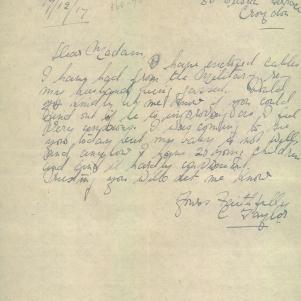 17/12/17
Croydon
Dear Madam, I hope enclosed cables
I having had from the Military re
my husband being Gassed. Would
you kindly let me know if you could
find out if he is improving as I feel
very anxious. I was coming to see
you today but my baby is not well
and anyhow I have 2 young children
and find it hardly convenient.
Trusting you will let me know
Yours Faithfully
C Taylor